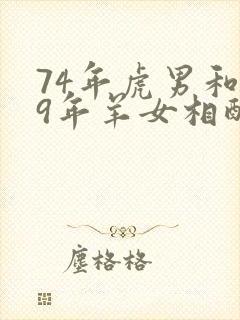 74年虎男和
9年羊女相酉
塵格格